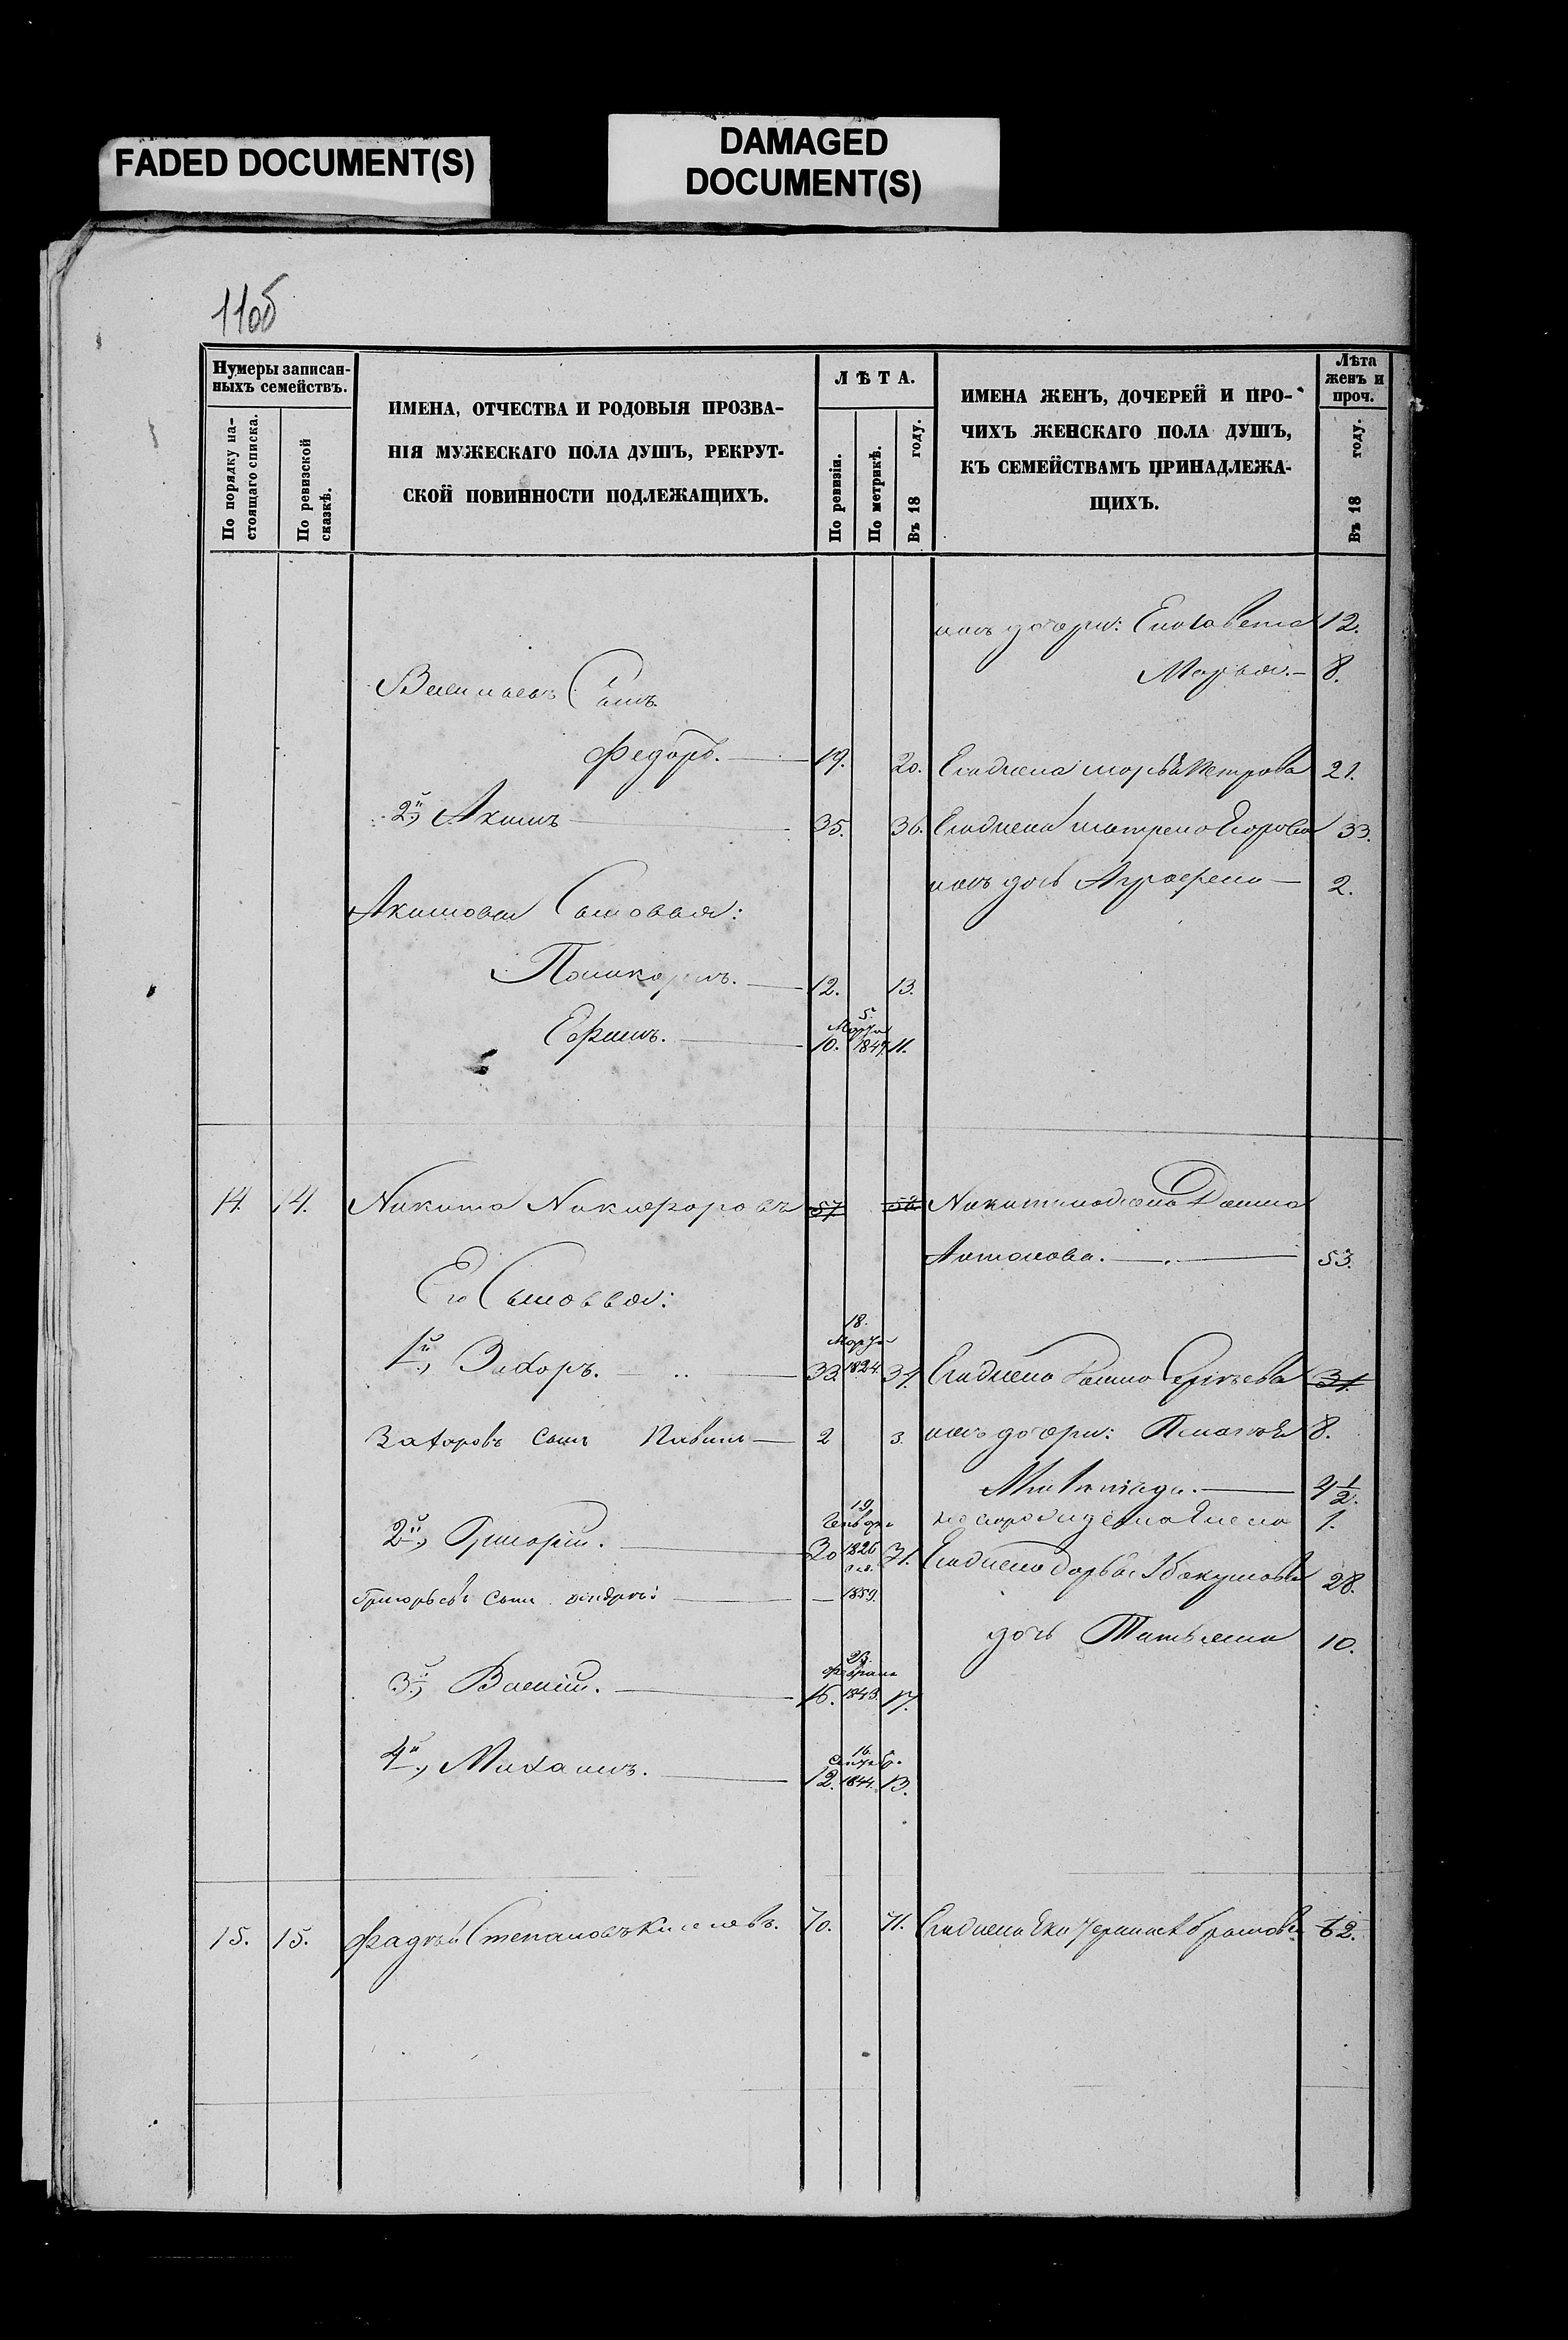 FADED DOCUMENT(S)
DAMAGED
DOCUMENT(S)
110б
Нумеры записан-
ныхъ семействъ.
По порядку на-
стоящаго списка.
По ревизской
сказкѣ.
ИМЕНА, ОТЧЕСТВА И РОДОВЫЯ ПРОЗВА-
НІЯ МУЖЕСКАГО ПОЛА ДУШЪ, РЕКРУТ-
СКОЙ ПОВИННОСТИ ПОДЛЕЖАЩИХЪ.
ЛѢТА.
По ревизіи.
По метрикѣ.
Въ 18 году.
ИМЕНА ЖЕНЪ, ДОЧЕРЕЙ И ПРО-
ЧИХЪ ЖЕНСКАГО ПОЛА ДУШЪ,
КЪ СЕМЕЙСТВАМЪ ПРИНАДЛЕЖА-
ЩИХЪ.
Лѣта
женъ и
проч.
Въ 18 году.
ихъ дочери: Елисавета 12.
Марья. 8.
Васильевъ Сынъ
Федоръ. 19. 20. Егожена Марья Петрова 21.
2й, Акимъ 35. 36. Егожена Матрена Егорова 33.
ихъ дочь Аграфена 2.
Акимовы Сыновья:
12. 13.
5. Марта
Ефимъ. 10. 1847. 11.
14. 14. Никита Никифоровъ 57 58 Никитиножена Дарья
Антонова. 53.
Его Сыновья:
18. Марта
1й, Захаръ. 33. 1824. 34. Егожена Сергѣева 31.
Захаровъ Сынъ 2 3. ихъ дочери: Пелагея 8.
4 1/2.
19.
1.
2й, Григорій. 30 1826 31. Егожена Дарья 28.
Григорьевъ Сынъ 1859.
дочь Татьяна 10.
23. Февраля
3й, Василій. 16. 1843. 17.
16. Сентяб.
4й, Михаилъ. 12. 1844. 13.
15. 15. Фадѣй Степановъ Киселевъ. 70. 71. Егожена Екатерина Абрамова 62.